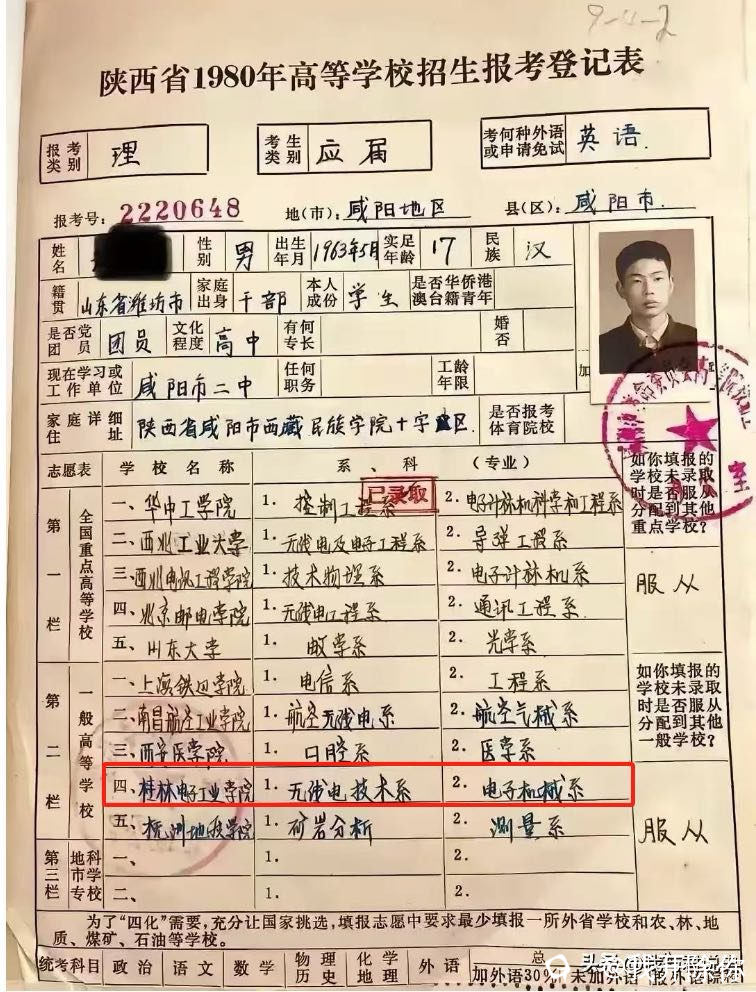 9-4-2
陕西省1980年高等学校招生报考登记表
报考类别 理 考生类别 应届 考何种外语或申请免试 英语
报考号: 2220648 地(市): 咸阳地区 县(区): 咸阳市
姓名 性别 男 出生年月 1963年5月 实足年龄 17 民族 汉
籍贯 山东省潍坊市 家庭出身 干部 本人成份 学生 是否华侨港澳台籍青年
是否党团员 团员 文化程度 高中 有何专长 婚否
现在学习或工作单位 咸阳市二中 任何职务 工龄年限 加
家庭详细住址 陕西省咸阳市西藏民族学院十字 区 是否报考体育院校
志愿表 学校名称 系、科 (专业) 如你填报的学校未录取时是否服从分配到其他重点学校?
已录取
第一栏 全国重点高等学校
一、华中工学院 1. 控制工程系 2. 电子计祘机科学和工程系
二、西北工业大学 1. 无线电及电子工程系 2. 导弹工程系
三、西北电讯工程学院 1. 技术物理系 2. 电子计祘机系 服从
四、北京邮电学院 1. 无线电工程系 2. 通讯工程系
五、山东大学 1. 数学系 2. 光学系
第二栏 一般高等学校 如你填报的学校未录取时是否服从分配到其他一般学校?
一、上海铁道学院 1. 电信系 2. 工程系
二、南昌航空工业学院 1. 航空无线电系 2. 航空气械系
三、西安医学院 1. 口腔系 2. 医学系
四、桂林电子工业学院 1. 无线电技术系 2. 电子机械系
五、杭州地质学院 1. 矿岩分析 2. 测量系 服从
第三栏 地市专科学校
一、 1. 2.
二、 1. 2.
为了“四化”需要,充分让国家挑选,填报志愿中要求最少填报一所外省学校和农、林、地
质、煤矿、石油等学校。
统考科目 政治 语文 数学 物理历史 化学地理 外语 总 加外语30% 未加外语